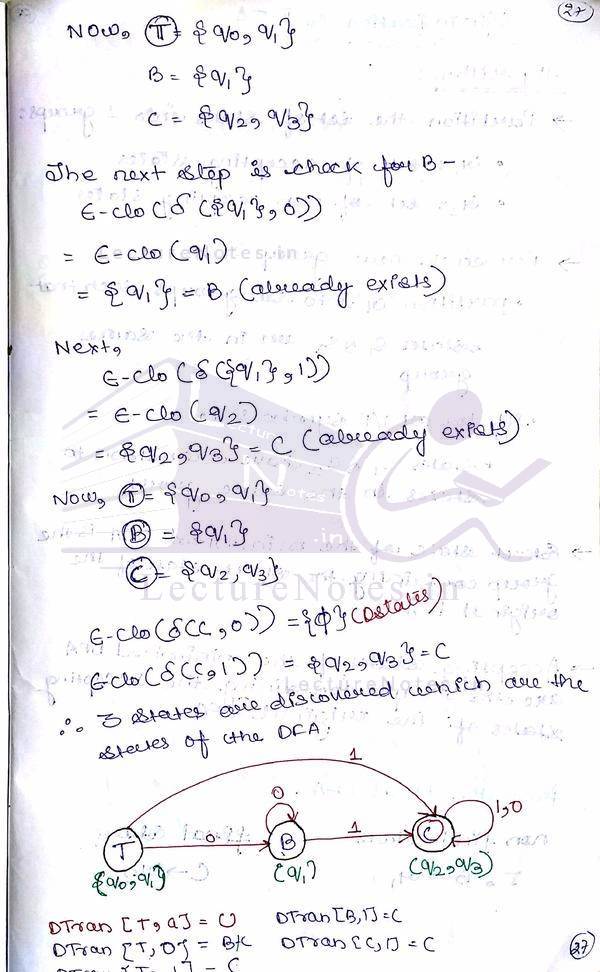 27
Now, T = {q0, q1}
B = {q1}
C = {q2, q3}
The next step is check for B -
ϵ-clo(δ({q1}, 0))
= ϵ-clo(q1)
= {q1} = B (already exists)
Next,
ϵ-clo(δ({q1}, 1))
= ϵ-clo(q2)
= {q2, q3} = C (already exists)
Now, T = {q0, q1}
B = {q1}
C = {q2, q3}
LectureNotes.in
ϵ-clo(δ(C, 0)) = {ϕ} (Dstates)
ϵ-clo(δ(C, 1)) = {q2, q3} = C
∴ 3 states are discovered which are the
states of the DFA.
1
0 1,0
T 0 B 1 C
{q0, q1} (q1) (q2, q3)
DTran [T, a] = U DTran [B, 1] = C
DTran [T, 0] = B DTran [C, 1] = C
27